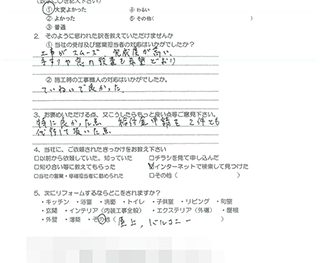 ①大変よかった　④わるい
②よかった　⑤その他(　　　)
③普通
2. そのように思われた訳を教えていただけませんか
① 当社の受付及び営業担当者の対応はいかがでしたか？
工事がスムーズ 完成度が高い、
手すりや窓の設置も希望どおり
② 施工時の工事職人の対応はいかがでしたか。
ていねいで良かった
3. お褒めいただける点、又こうしたらもっと良い点等ご意見下さい。
特に良かった点
代行して頂いた点
4. 当社に、ご依頼されたきっかけをお教え下さい
□以前から依頼していた、知っていた　□チラシを見て申し込んだ
□知り合い等に教えてもらった　☑インターネットで検索して見つけた
□当社の営業・現場担当者に勧められた　□その他(　　　)
5. 次にリフォームするならどこをされますか？
・キッチン ・浴室 ・洗面 ・トイレ ・子供室 ・リビング ・和室
・玄関 ・インテリア(内装工事全般) ・エクステリア(外構) ・屋根
・外壁 ・薄築 ・その他( 屋上、バルコニー